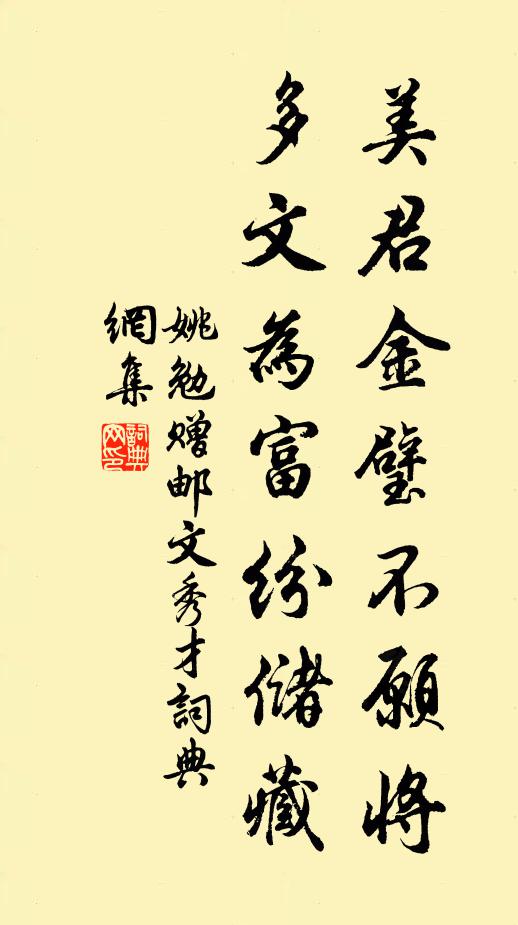 美君金璧不願將
多文為富紛儲藏
姚勉贈邮文秀才詞典
網集
詞典
网印